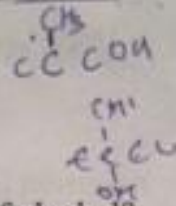 CH3
C C C OH
CH3
C C C
OH